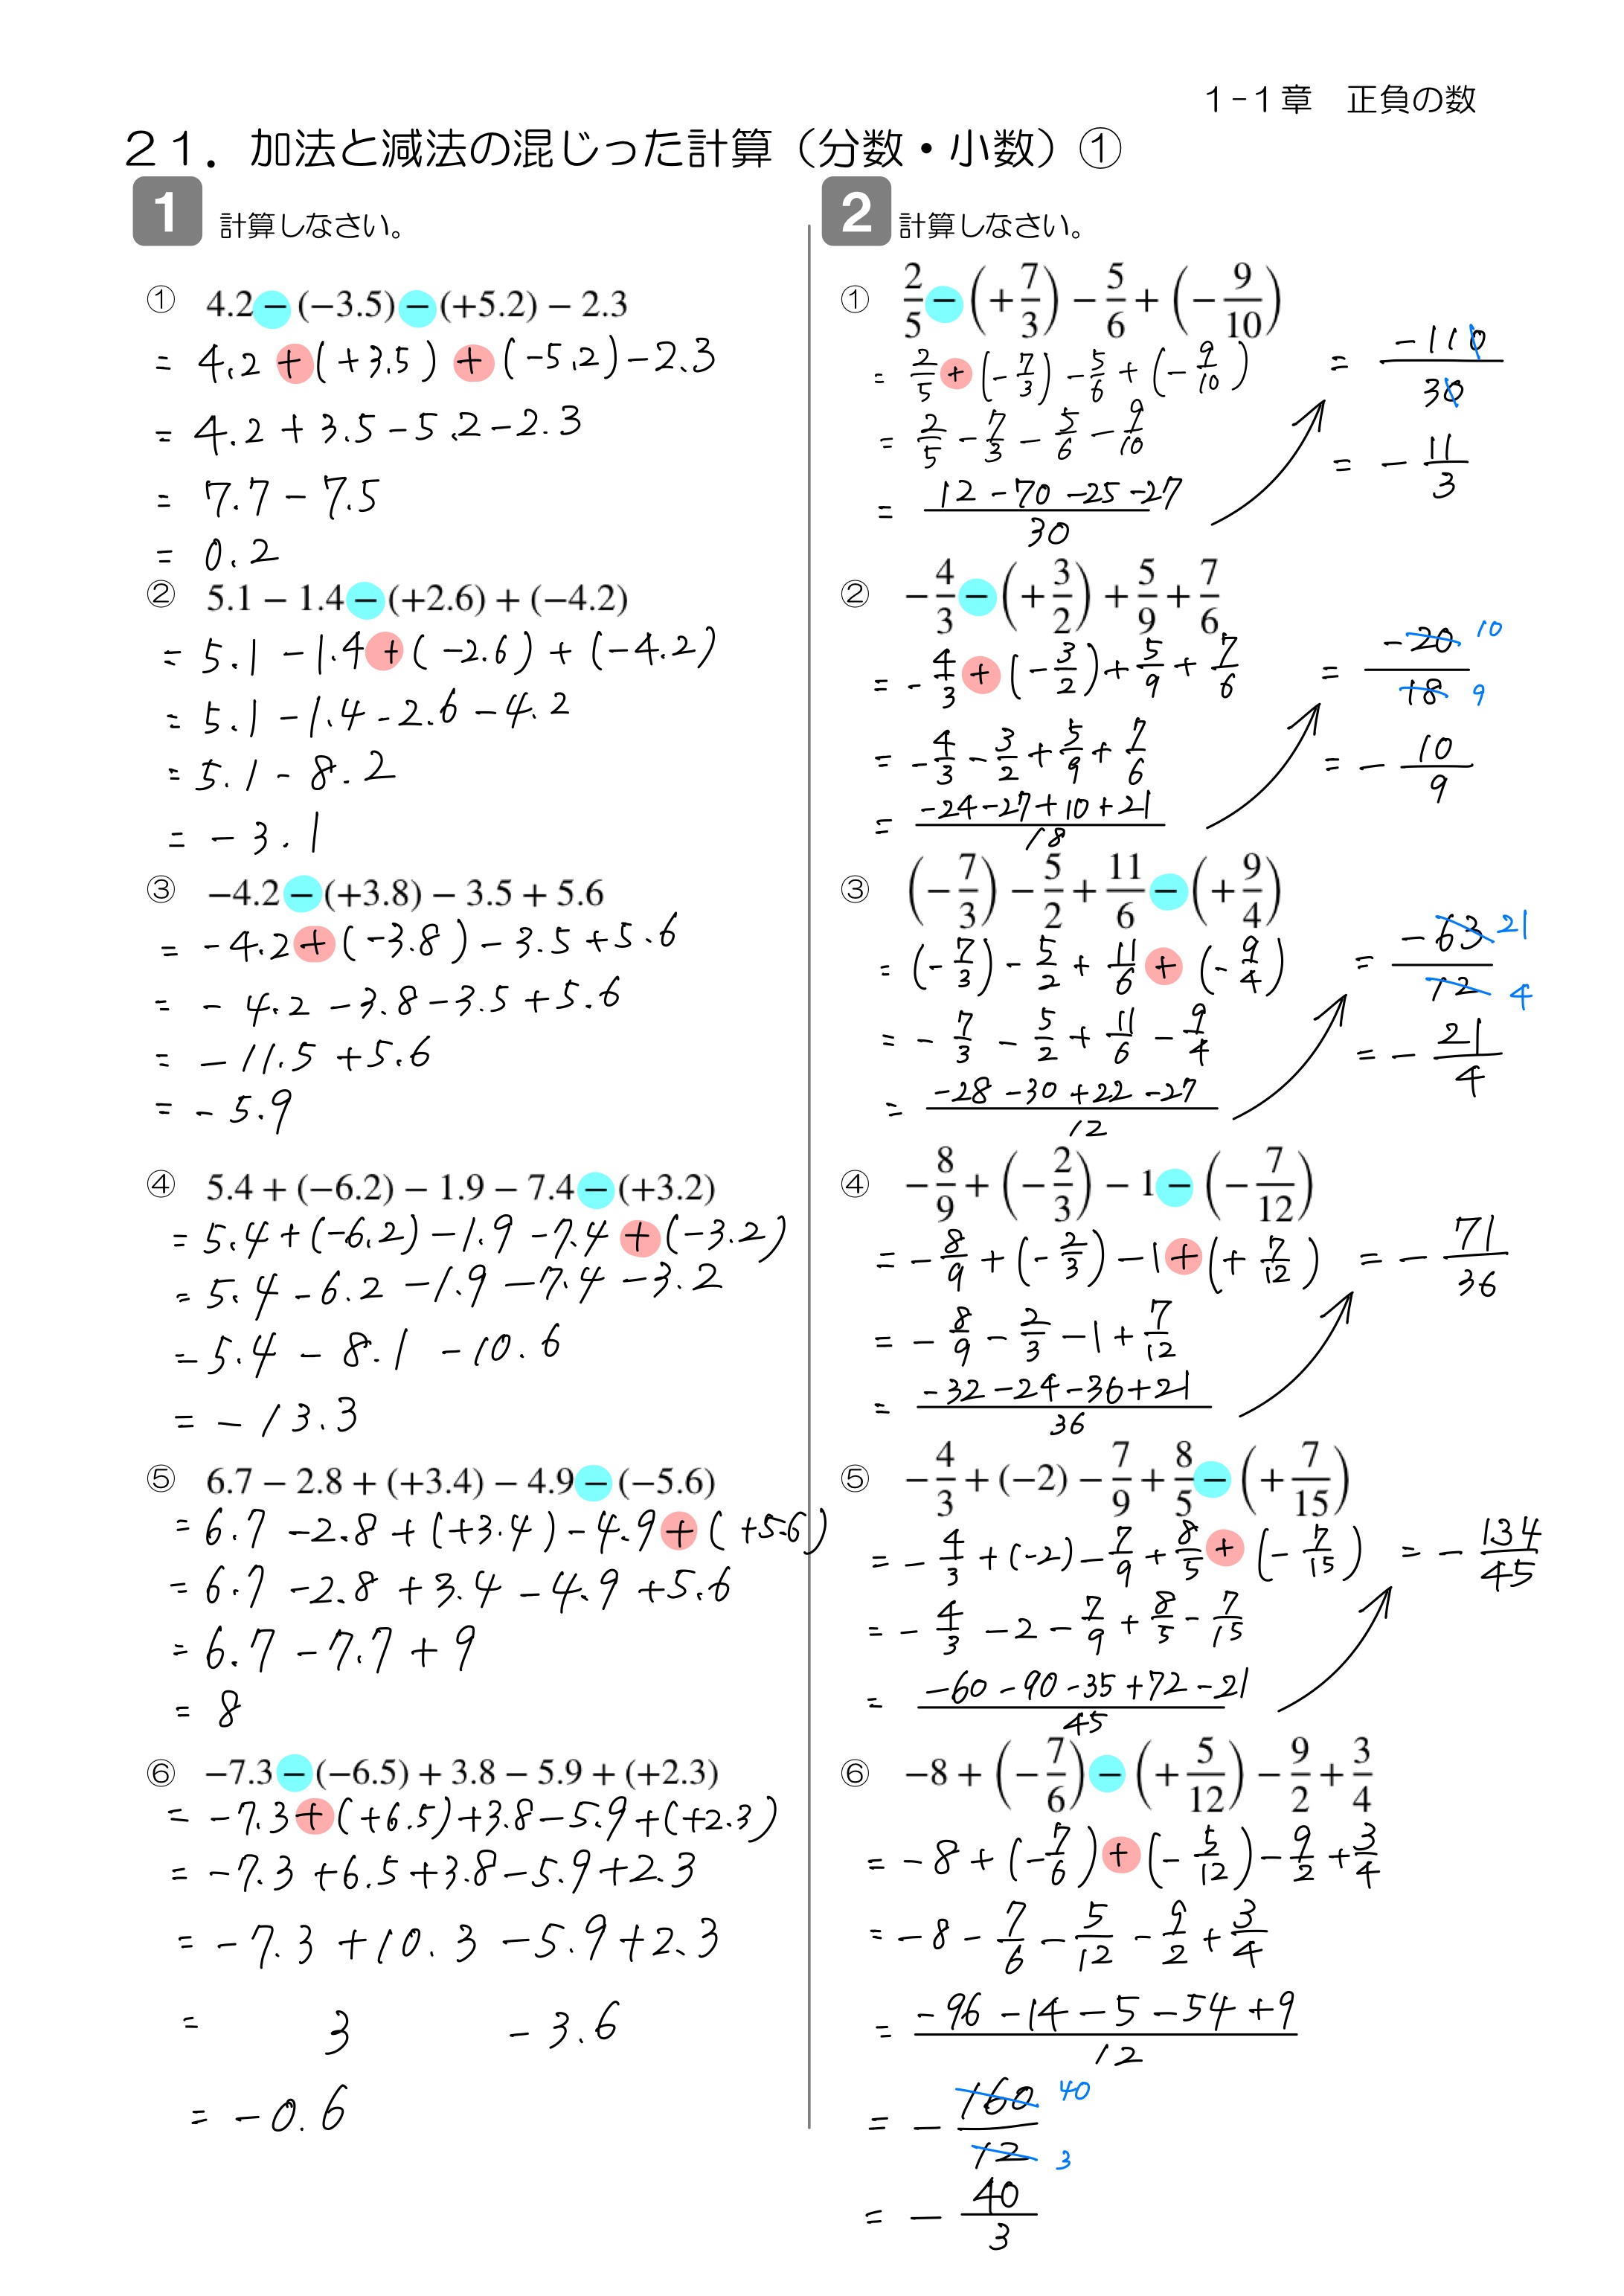 1-1章　正負の数
２１．加法と減法の混じった計算（分数・小数）①
1 計算しなさい。
① 4.2 − (−3.5) − (+5.2) − 2.3
= 4.2 + (+3.5) + (-5.2) - 2.3
= 4.2 + 3.5 - 5.2 - 2.3
= 7.7 - 7.5
= 0.2
② 5.1 − 1.4 − (+2.6) + (−4.2)
= 5.1 - 1.4 + (-2.6) + (-4.2)
= 5.1 - 1.4 - 2.6 - 4.2
= 5.1 - 8.2
= -3.1
③ −4.2 − (+3.8) − 3.5 + 5.6
= -4.2 + (-3.8) - 3.5 + 5.6
= -4.2 - 3.8 - 3.5 + 5.6
= -11.5 + 5.6
= -5.9
④ 5.4 + (−6.2) − 1.9 − 7.4 − (+3.2)
= 5.4 + (-6.2) - 1.9 - 7.4 + (-3.2)
= 5.4 - 6.2 - 1.9 - 7.4 - 3.2
= 5.4 - 8.1 - 10.6
= -13.3
⑤ 6.7 − 2.8 + (+3.4) − 4.9 − (−5.6)
= 6.7 - 2.8 + (+3.4) - 4.9 + (+5.6)
= 6.7 - 2.8 + 3.4 - 4.9 + 5.6
= 6.7 - 7.7 + 9
= 8
⑥ −7.3 − (−6.5) + 3.8 − 5.9 + (+2.3)
= -7.3 + (+6.5) + 3.8 - 5.9 + (+2.3)
= -7.3 + 6.5 + 3.8 - 5.9 + 2.3
= -7.3 + 10.3 - 5.9 + 2.3
= 3 - 3.6
= -0.6
2 計算しなさい。
① 2/5 − (+7/3) − 5/6 + (−9/10)
= 2/5 + (-7/3) - 5/6 + (-9/10)
= 2/5 - 7/3 - 5/6 - 9/10
= (12 - 70 - 25 - 27)/30
= -110/30
= -11/3
② −4/3 − (+3/2) + 5/9 + 7/6
= -4/3 + (-3/2) + 5/9 + 7/6
= -4/3 - 3/2 + 5/9 + 7/6
= (-24 - 27 + 10 + 21)/18
= -20/18 10 9
= -10/9
③ (−7/3) − 5/2 + 11/6 − (+9/4)
= (-7/3) - 5/2 + 11/6 + (-9/4)
= -7/3 - 5/2 + 11/6 - 9/4
= (-28 - 30 + 22 - 27)/12
= -63/12 21 4
= -21/4
④ −8/9 + (−2/3) − 1 − (−7/12)
= -8/9 + (-2/3) - 1 + (+7/12)
= -8/9 - 2/3 - 1 + 7/12
= (-32 - 24 - 36 + 21)/36
= -71/36
⑤ −4/3 + (−2) − 7/9 + 8/5 − (+7/15)
= -4/3 + (-2) - 7/9 + 8/5 + (-7/15)
= -4/3 - 2 - 7/9 + 8/5 - 7/15
= (-60 - 90 - 35 + 72 - 21)/45
= -134/45
⑥ −8 + (−7/6) − (+5/12) − 9/2 + 3/4
= -8 + (-7/6) + (-5/12) - 9/2 + 3/4
= -8 - 7/6 - 5/12 - 9/2 + 3/4
= (-96 - 14 - 5 - 54 + 9)/12
= -160/12 40 3
= -40/3